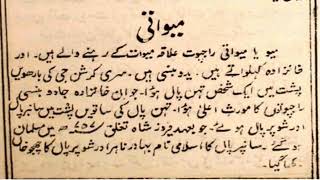 میواتی
میو یا میواتی راجپوت علاقہ میوات کے رہنے والے ہیں۔ اور
خانزادہ کہلواتے ہیں۔ یدو بنسی ہیں۔ سری کرشن جی کی بارھویں
پشت میں ایک شخص تہن پال ہوا۔ جو ان خانزادہ جادو بنسی
راجپوتوں کا مورث اعلیٰ ہوا۔ تہن پال کی ساتویں پشت میں سانپر پال
اور شوپر پال ہوئے۔ جو بعہد فیروز شاہ تغلق میں مسلمان
ہو گئے۔ سانپر پال کا اسلامی نام بہادر ناہر اور شوپر پال کا چھجو خاں
رکھا گیا۔